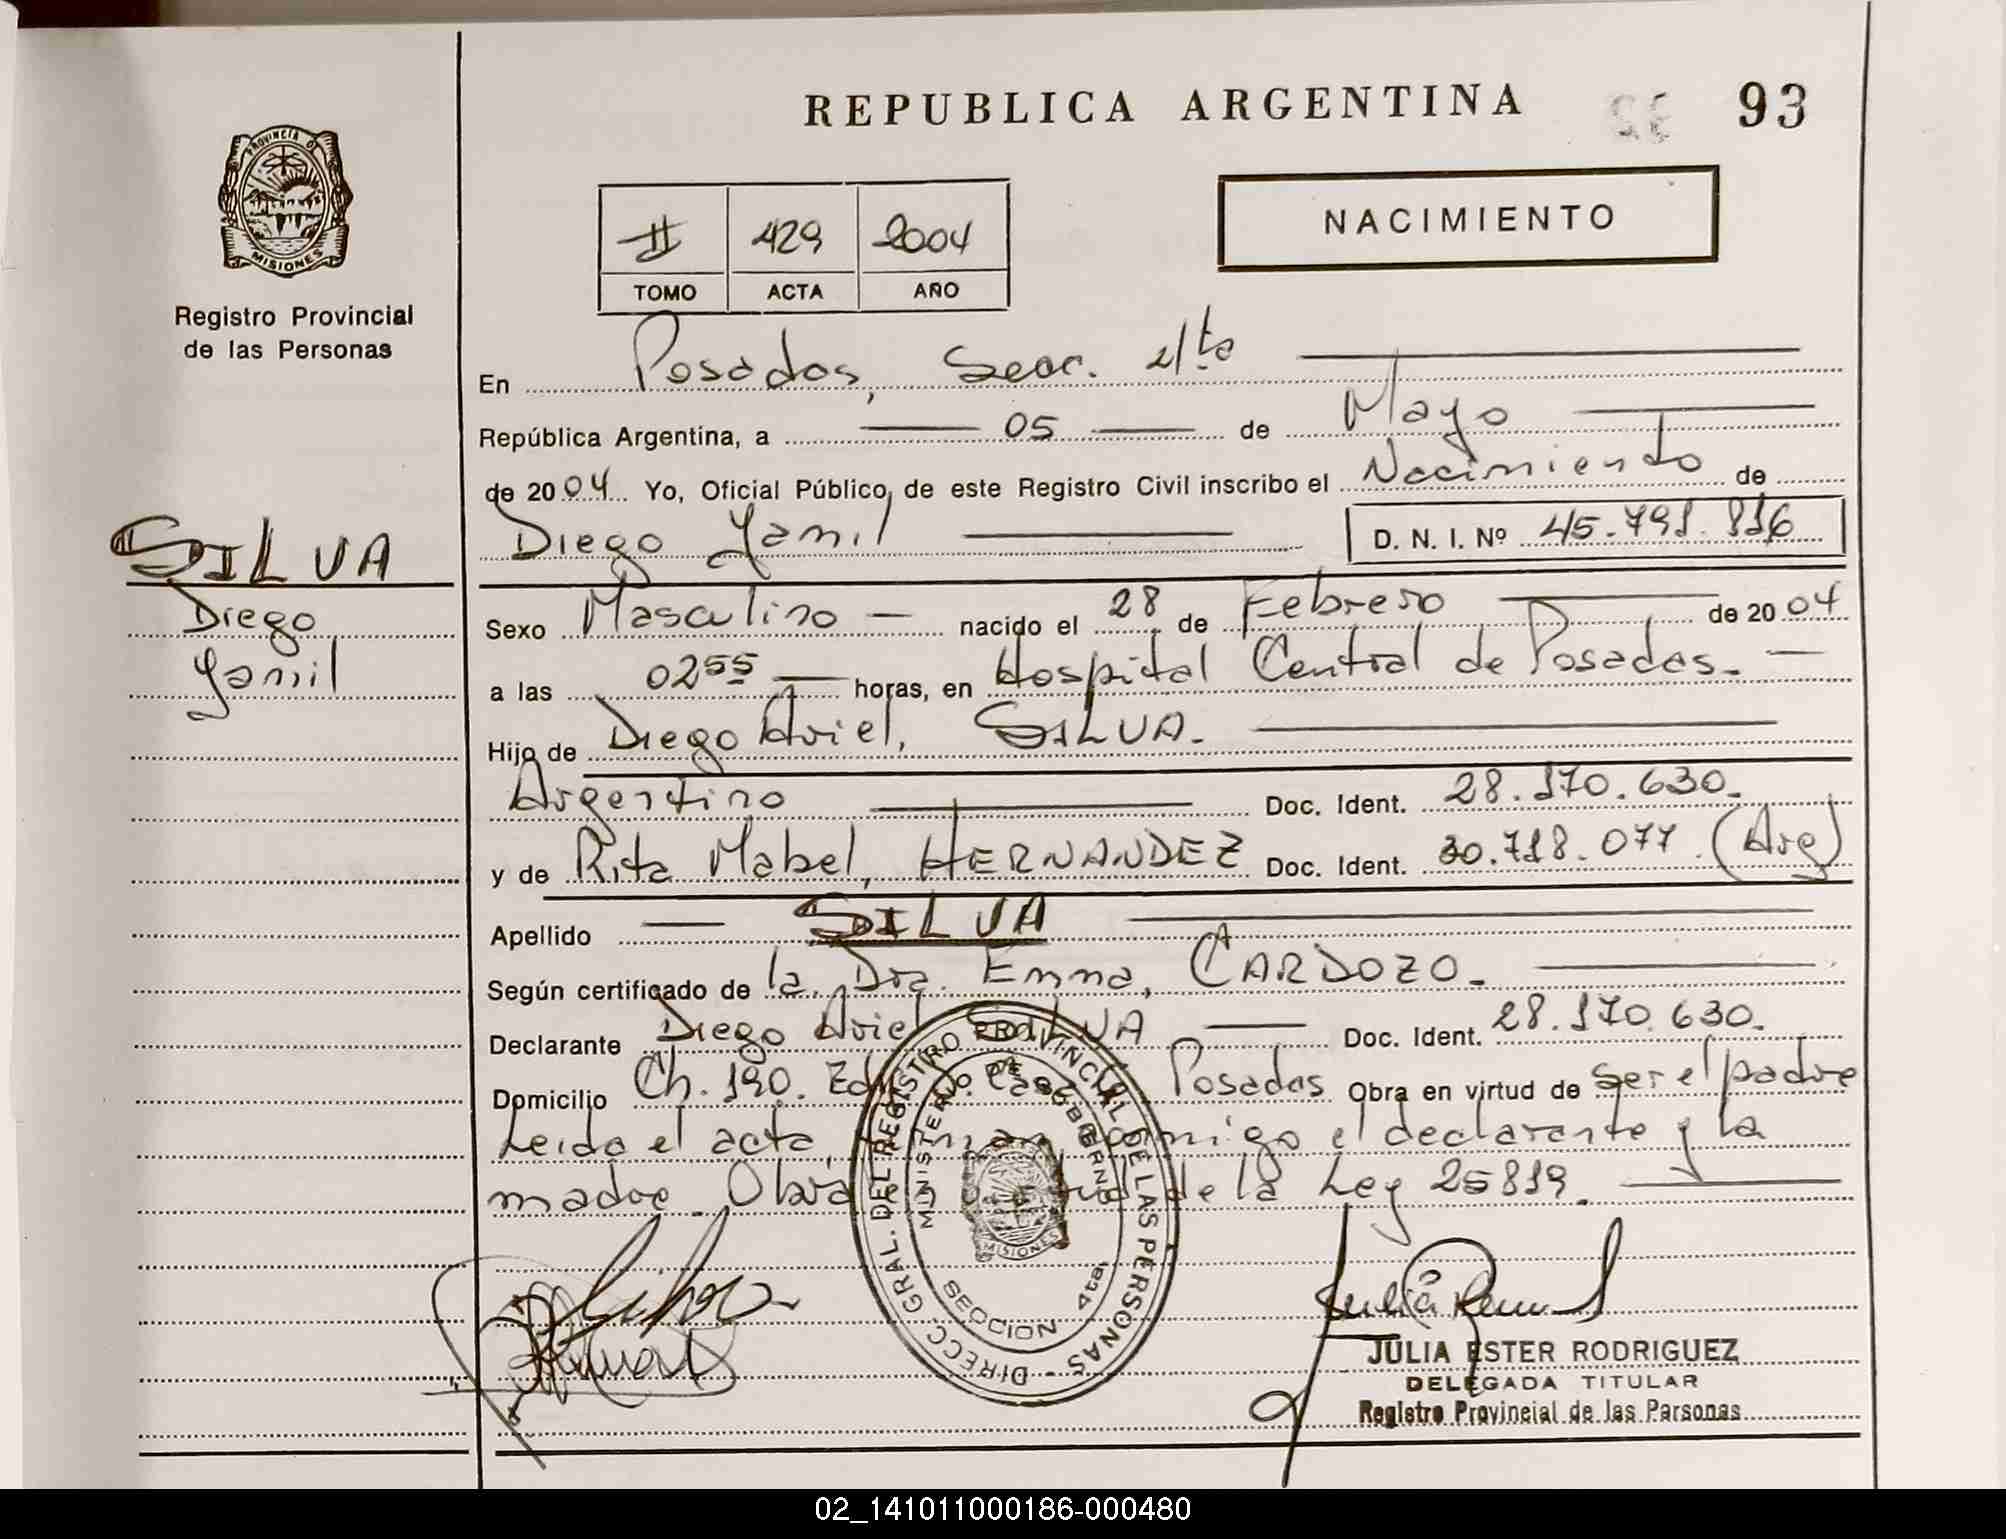 REPUBLICA ARGENTINA
93
PROVINCIA DE MISIONES
Registro Provincial
de las Personas
NACIMIENTO
II 429 2004
TOMO ACTA AÑO
En Posadas, Secc. 4ta
República Argentina, a 05 de Mayo
de 2004 Yo, Oficial Público, de este Registro Civil inscribo el Nacimiento de
Diego Yamil D. N. I. Nº 45.791.816
SILVA
Diego
Yamil
Sexo Masculino nacido el 28 de Febrero de 2004
a las 02 55 horas, en Hospital Central de Posadas.
Hijo de Diego Ariel, SILVA.
Argentino Doc. Ident. 28.170.630.
y de Rita Mabel, HERNANDEZ Doc. Ident. 30.718.077 (Arg)
Apellido SILVA
Según certificado de la Dra. Emma, CARDOZO.
Declarante Diego Ariel SILVA Doc. Ident. 28.170.630.
Domicilio Ch. 190. Posadas Obra en virtud de ser el padre
Leida el acta, firman conmigo el declarante y la
madre. Obra en virtud de la Ley 25819.
DIRECC. GRAL. DEL REGISTRO PROVINCIAL DE LAS PERSONAS
MINISTERIO DE GOBIERNO
MISIONES
SECCION 4ta
JULIA ESTER RODRIGUEZ
DELEGADA TITULAR
Registro Provincial de las Personas
02_141011000186-000480